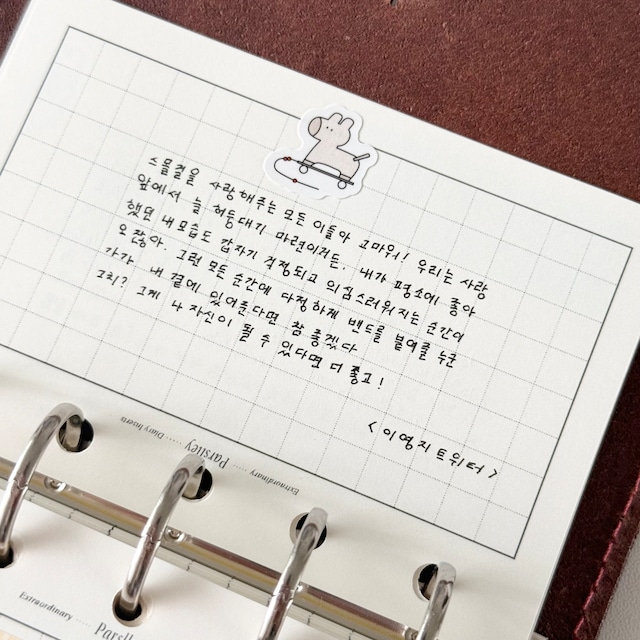 스물걸을 사랑해주는 모든 이들아 고마워! 우리는 사랑
앞에서 늘 허둥대기 마련이거든. 내가 평소에 좋아
했던 내 모습도 갑자기 걱정되고 의심스러워지는 순간이
오잖아. 그런 모든 순간에 다정하게 밴드를 붙여줄 누군
가가 내 곁에 있어준다면 참 좋겠다.
그치? 그게 나 자신이 될 수 있다면 더 좋고!
<이영지 트위터>
Extraordinary Parsley Diary Inserts
Extraordinary Parsl